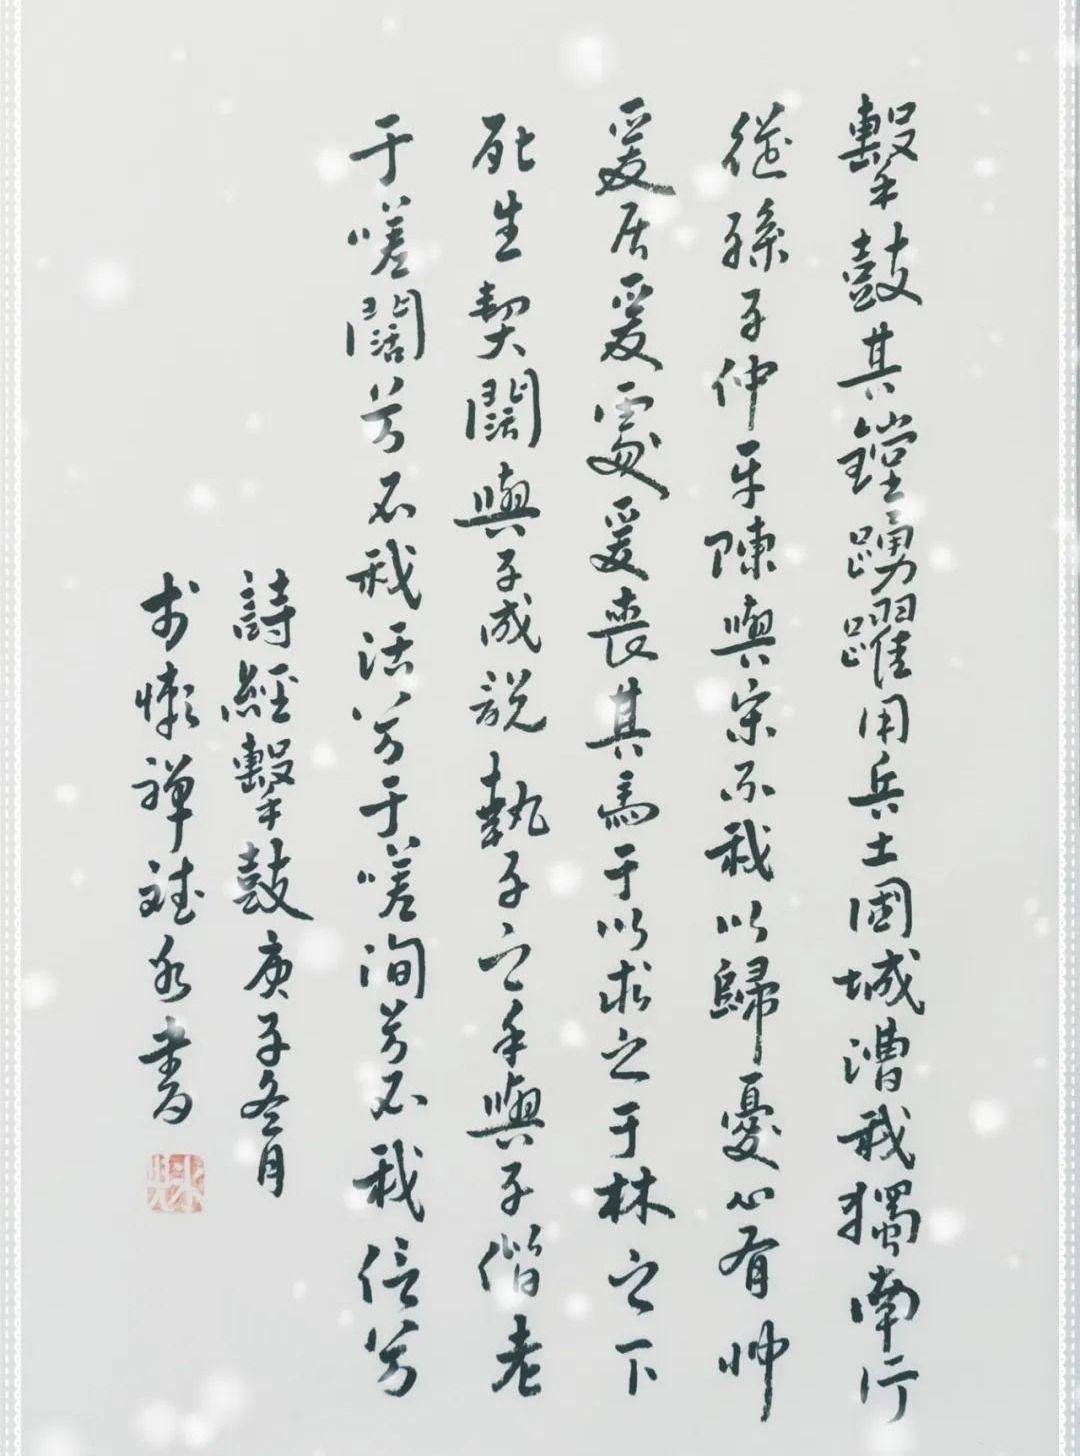 擊鼓其鏜踴躍用兵土國城漕我獨南行
從孫子仲平陳與宋不我以歸憂心有忡
爰居爰處爰喪其馬于以求之于林之下
死生契闊與子成説執子之手與子偕老
于嗟闊兮不我活兮于嗟洵兮不我信兮
詩經擊鼓庚子冬月
於懶禪書